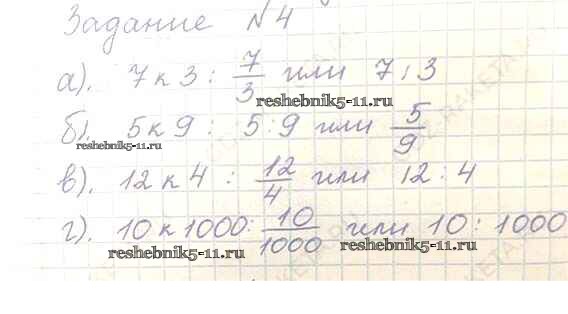 Задание №4
а). 7 к 3 : 7/3 или 7 : 3
reshebnik5-11.ru
б). 5 к 9 : 5 : 9 или 5/9
reshebnik5-11.ru
в). 12 к 4 : 12/4 или 12 : 4
г). 10 к 1000 : 10/1000 или 10 : 1000
reshebnik5-11.ru reshebnik5-11.ru